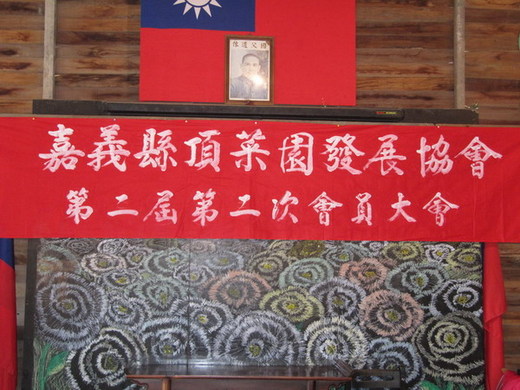 國父遺像
嘉義縣頂菜園發展協會
第二屆第二次會員大會